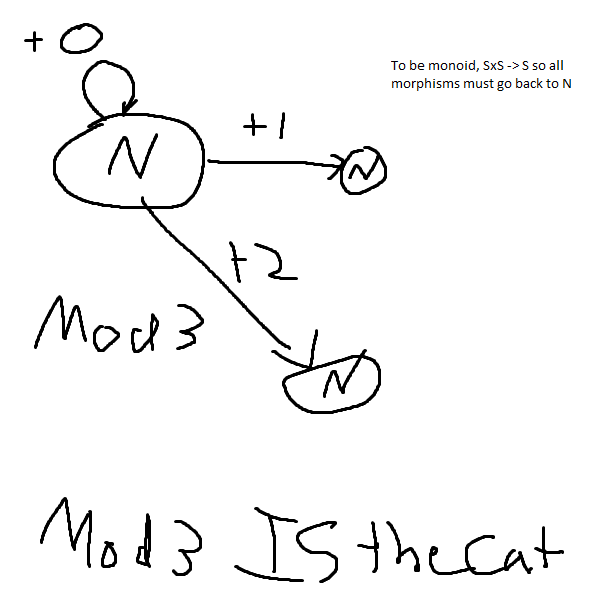 + 0
To be monoid, SxS -> S so all
morphisms must go back to N
+1
N
N
+2
Mod 3
N
Mod 3 IS the cat